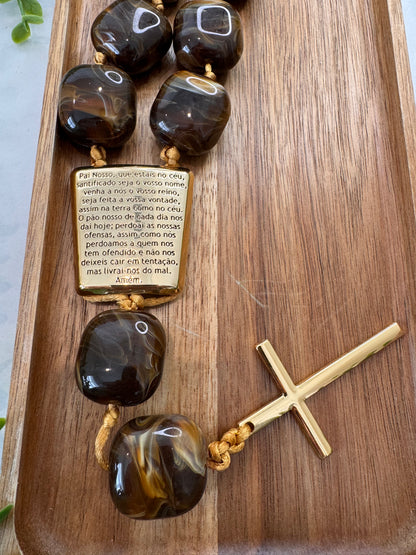 Pai Nosso, que estais no céu,
santificado seja o vosso nome,
venha a nós o vosso reino,
seja feita a vossa vontade,
assim na terra como no céu.
O pão nosso de cada dia nos
daí hoje; perdoai as nossas
ofensas, assim como nós
perdoamos a quem nos
tem ofendido e não nos
deixeis cair em tentação,
mas livrai-nos do mal.
Amém.